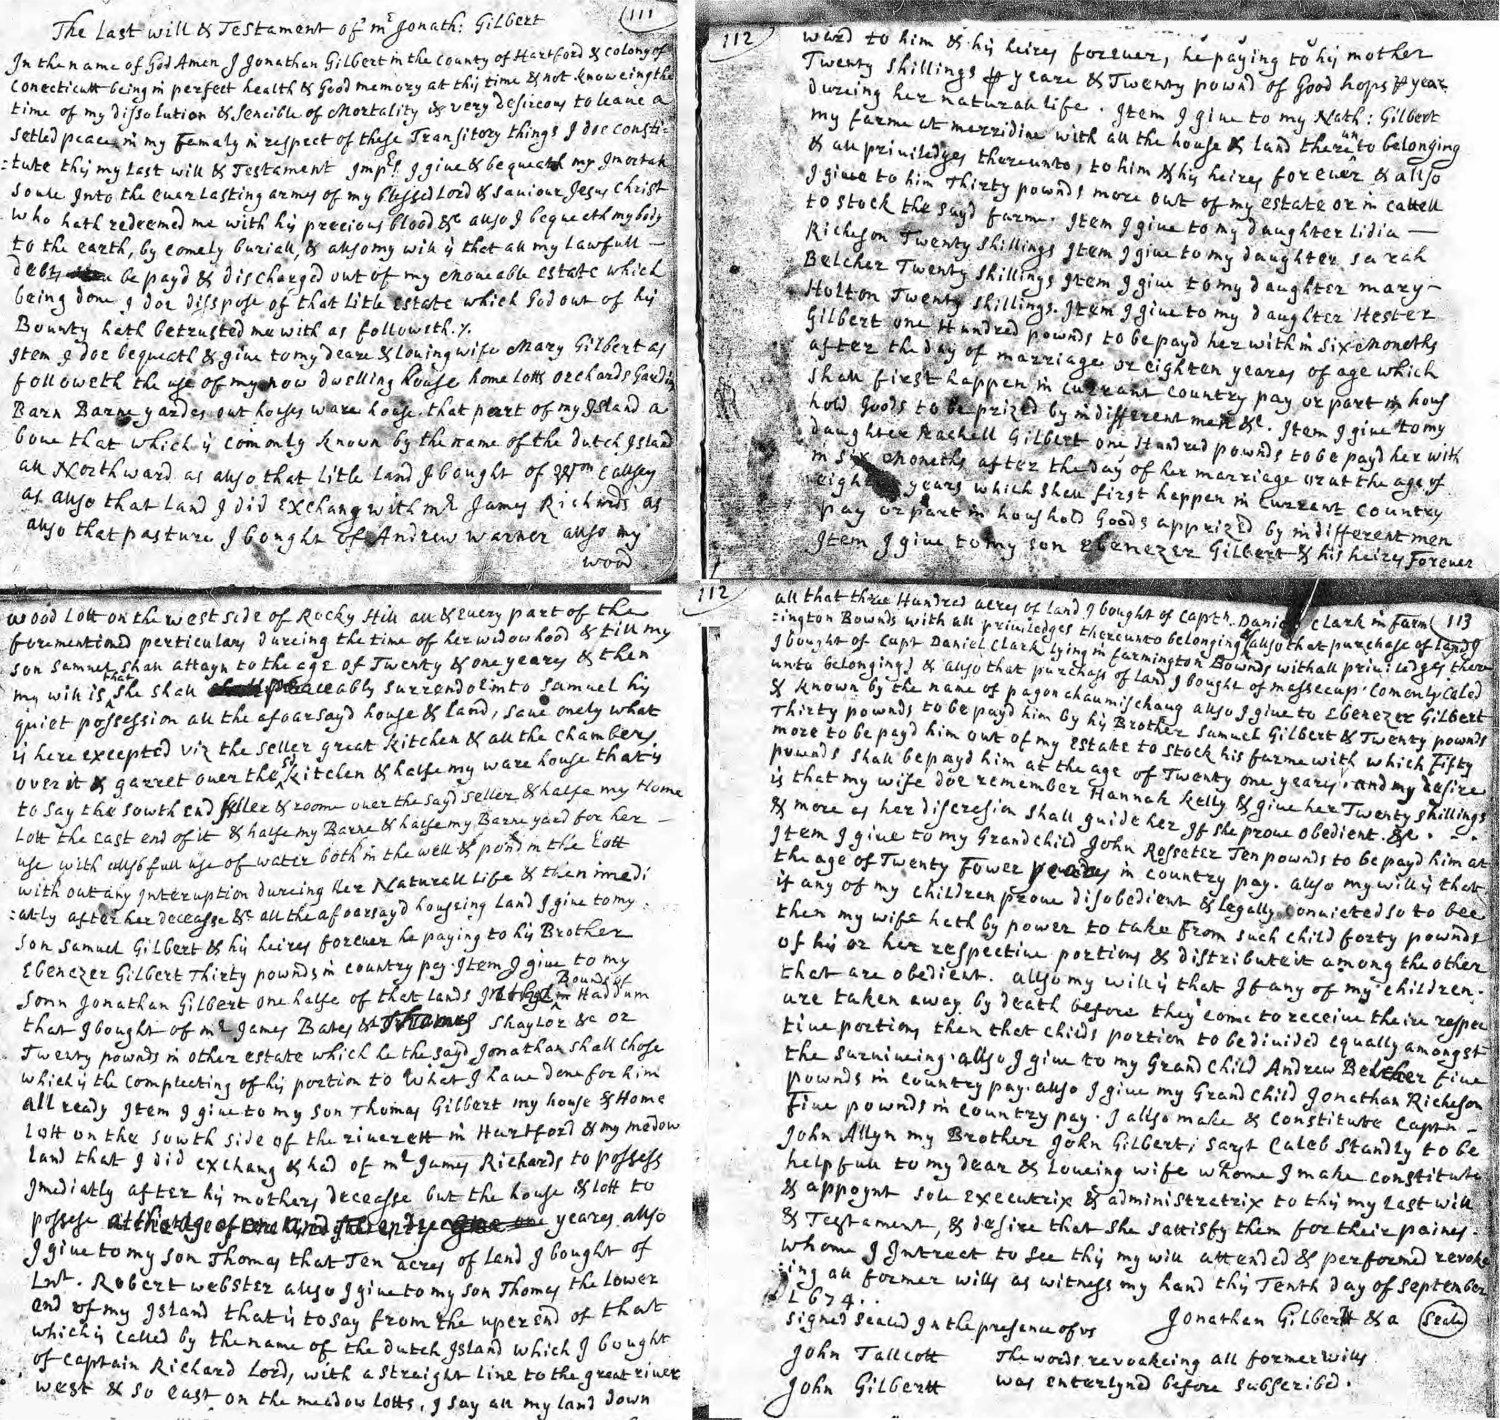 111
The Last will & Testament of mr Jonath: Gilbert
In the name of God Amen I Jonathan Gilbert in the county of Hartford & colony of
Conecticutt being in perfect health & Good memory at this time & not knoweing the
time of my dissolution & Sencible of Mortality & very desireous to leave a
setled peace in my femaly in respect of these Transitory things I doe consti-
:tute this my Last will & Testament Impes. I give & bequeath my Imortall
soule Into the everLasting armes of my blessed Lord & Saviour Jesus Christ
who hath redeemed me with his precious blood &c allso I bequeath my body
to the earth, by comely buriall, & allso my will is that all my Lawfull —
debts be payd & discharged out of my moueable estate which
being done I doe disspose of that litle estate which God out of his
Bounty hath betrusted me with as followeth.
Item I doe bequeath & give to my deare & loving wife Mary Gilbert as
followeth the use of my now dwelling house home Lotts orchards Gardin
Barn Barne yardes out houses ware house that part of my Island a
boue that which is comonly known by the name of the dutch Island
all Northward as allso that litle Land I bought of Wm Callsey
as allso that Land I did Exchang with mr James Richards as
allso that pasture I bought of Andrew Warner allso my
wood
wood Lott on the west side of Rocky Hill all & Every part of the
forementioned perticulars dureing the time of her widowhood & till my
son Samuel shall attayn to the age of Twenty & one yeares & then
my will is that she shall peaceably surrender into Samuel his
quiet possession all the afoarsayd house & land, save onely what
is here excepted viz the seller great kitchen & all the chambers
over it & garret over the sd kitchen & halfe my ware house that is
to say the south end seller & roome over the sayd seller & halfe my Home
Lott the East end of it & halfe my Barne & halfe my Barne yard for her —
use with allso full use of water both in the well & pond in the Lott
with out any Interuption dureing her Naturall Life & then imedi
:atly after her deceasse &c all the afoarsayd houseing Land I give to my
son Samuel Gilbert & his heires forever he paying to his Brother
Ebenezer Gilbert Thirty pownds in country pay. Item I give to my
sonn Jonathan Gilbert one halfe of that lands in Bounds of Haddum
that I bought of mr James Bates & Thomas Shaylor &c or
Twenty pownds in other estate which he the sayd Jonathan shall chose
which is the compleeting of his portion to what I have done for him
all ready Item I give to my son Thomas Gilbert my house & Home
Lott on the south side of the riverett in Hartford & my medow
land that I did exchang & had of mr James Richards to possess
Imediatly after his mothers deceasse but the house & lott to
possese at the age of yeares allso
I give to my son Thomas that Ten acres of land I bought of
Lnt. Robert webster allso I give to my son Thomas the Lower
end of my Island that is to say from the uper End of that
which is called by the name of the dutch Island which I bought
of captain Richard Lord, with a streight line to the great river
west & so east on the meadow Lotts, I say all my land down
112
ward to him & his heires forever, he paying to his mother
Twenty shillings ꝑ yeare & Twenty pownd of Good hops ꝑ year
dureing her naturall life. Item I give to my Nath: Gilbert
my farme at merridine with all the house & land there un to belonging
& all priviledges thereunto, to him & his heires forever & allso
I give to him Thirty pownds more out of my estate or in cattell
to stock the sayd farme. Item I give to my daughter Lidia —
Richeson Twenty shillings Item I give to my daughter sarah
Belcher Twenty shillings Item I give to my daughter mary —
Holton Twenty shillings. Item I give to my daughter Hester
Gilbert one Hundred pownds to be payd her with in six moneths
after the day of marriage or eighten yeares of age which
shall first happen in currant country pay or part in hous
hold goods to be prized by indifferent men &c. Item I give to my
daughter Rachell Gilbert one Hundred pownds to be payd her with
in six moneths after the day of her marriage or at the age of
eight years which shall first happen in current country
pay or part in houshold Goods apprized by indifferent men
Item I give to my son Ebenezer Gilbert & his heires Forever
112
113
all that three Hundred acres of land I bought of Captn. Daniel Clark in farm
:ington Bownds with all priviledges thereunto belonging & allso that purchase of land
I bought of Capt Daniel Clark lying in farmington Bownds withall priviledges there
unto belonging) & allso that purchass of land I bought of massecup comonly caled
& known by the name of pagonchaumischaug allso I give to Ebenezer Gilbert
Thirty pownds to be payd him by his Brother Samuel Gilbert & Twenty pownds
more to be payd him out of my Estate to stock his farme with which fifty
pownds shall be payd him at the age of Twenty one yeares, and my desire
is that my wife doe remember Hannah Kelly & give her Twenty shillings
& more as her discresion shall guide her If she prove obedient. &c.
Item I give to my Grandchild John Rosseter Ten pownds to be payd him at
the age of Twenty Fower yeares in country pay. allso my will is that
if any of my children prove disobedient & legally convicted so to bee
then my wife hath by power to take from such child forty pownds
of his or her respective portions & distribute it among the other
that are obedient. allso my will is that If any of my children
are taken away by death before they come to receive theire respec
tive portions then that childs portion to be divided equally amongst
the surviveing. allso I give to my Grand Child Andrew Belcher five
pownds in country pay. allso I give my Grand Child Jonathan Richeson
five pownds in country pay. I allso make & constitute Captn —
John Allyn my Brother John Gilbert, Sarjt Caleb Standly to be
helpfull to my dear & Loveing wife whome I make constitute
& appoynt sole executrix & administratrix to this my Last will
& Testament, & desire that she sattisfy them for their paines.
whome I Intreat to see this my will attended & performed revoke
:ing all former wills as witness my hand this Tenth day of September
1674..
signed sealed In the presence of us
Jonathan Gilbertt & a Seale
John Tallcott
John Gilbertt
The words revoakeing all former wills
was enterlyned before subscribed.